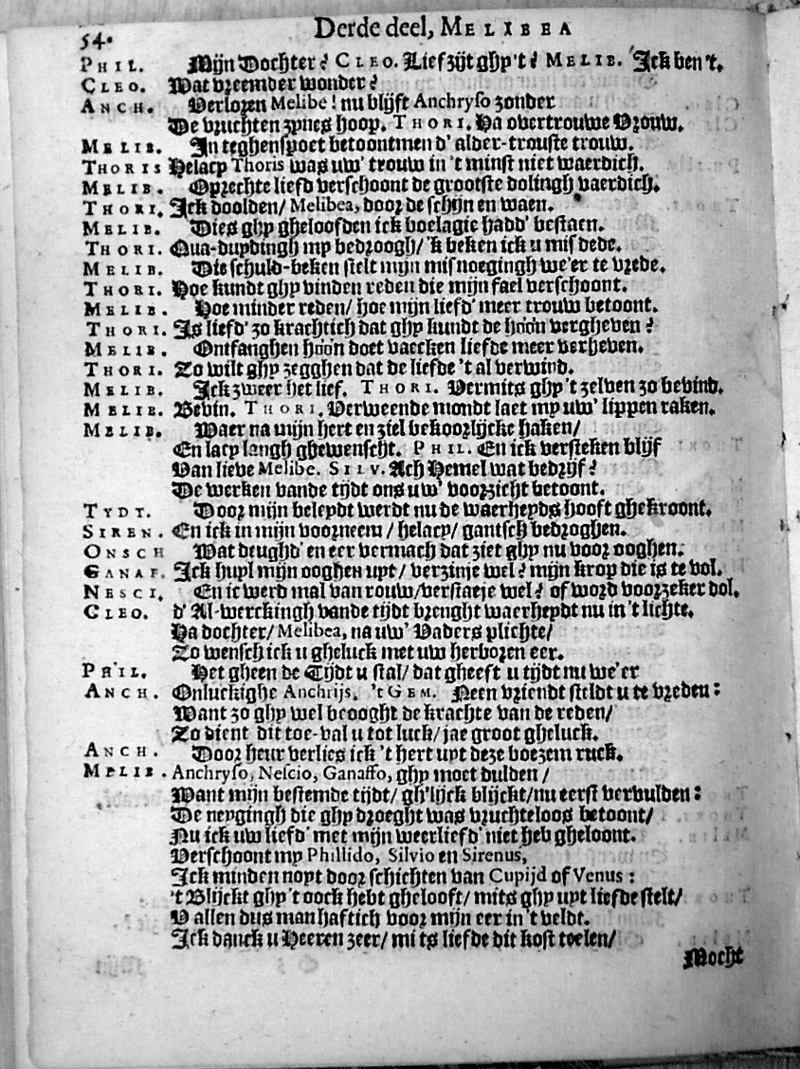 54.
Derde deel, MELIBEA
PHIL. Mijn Dochter? CLEO. Lief zijt ghy 't? MELIB. Ick ben 't.
CLEO. Wat vreemder wonder?
ANCH. Verloren Melibe! nu blijft Anchryso zonder
De vruchten zynes hoop. THORI. Ha overtrouwe Vrouw.
MELIB. In teghenspoet betoontmen d' alder-trouste trouw.
THORIS Helacy Thoris was uw' trouw in 't minst niet waerdich.
MELIB. Oprechte liefd verschoont de grootste dolingh vaerdich.
THORI. Ick doolden/ Melibea, door de schijn en waen.
MELIB. Dies ghy gheloofden ick boelagie hadd' bestaen.
THORI. Qua-duydingh my bedroogh/ 'k beken ick u mis dede.
MELIB. Die schuld-beken stelt mijn misnoegingh we'er te vrede.
THORI. Hoe kundt ghy vinden reden die mijn fael verschoont.
MELIB. Hoe minder reden/ hoe mijn liefd' meer trouw betoont.
THORI. Is liefd' zo krachtich dat ghy kundt de hóón vergheven?
MELIB. Ontfanghen hóón doet vaecken liefde meer verheven.
THORI. Zo wilt ghy zegghen dat de liefde 't al verwind.
MELIB. Ick zweer het lief. THORI. Vermits ghy 't zelven zo bevind.
MELIB. Bevin. THORI. Verweende mondt laet my uw' lippen raken.
MELIB. Waer na mijn hert en ziel bekoorlijcke haken/
En lacy langh ghewenscht. PHIL. En ick versteken blijf
Van lieve Melibe. SILV. Ach Hemel wat bedrijf?
De werken vande tijdt ons uw' voorzicht betoont.
TYDT. Door mijn beleydt werdt nu de waerheyds hooft ghekroont.
SIREN. En ick in mijn voorneem/ helacy/ gantsch bedroghen.
ONSCH Wat deughd' en eer vermach dat ziet ghy nu voor ooghen.
GANAF. Ick huyl mijn ooghen uyt/ verzinje wel? mijn krop die is te vol.
NESCI. En ic werd mal van rouw/ verstaeje wel? of word voorzeker dol.
CLEO. d' Al-werckingh vande tijdt brenght waerheydt nu in 't lichte.
Ha dochter/ Melibea, na uw' Vaders plichte/
Zo wensch ick u gheluck met uw herboren eer.
PHIL. Het gheen de Tijdt u stal/ dat gheeft u tijdt nu we'er
ANCH. Onluckighe Anchrijs. 't GEM. Neen vriendt steldt u te vreden:
Want zo ghy wel beooght de krachte van de reden/
Zo dient dit toe-val u tot luck/ jae groot gheluck.
ANCH. Door heur verlies ick 't hert uyt deze boezem ruck.
MELIB. Anchryso, Nescio, Ganaffo, ghy moet dulden/
Want mijn bestemde tijdt/ gh'lijck blijckt/ nu eerst vervulden:
De neygingh die ghy droeght was vruchteloos betoont/
Nu ick uw liefd' met mijn weerliefd' niet heb gheloont.
Verschoont my Phillido, Silvio en Sirenus,
Ick minden noyt door schichten van Cupijd of Venus:
't Blijckt ghy 't oock hebt ghelooft/ mits ghy uyt liefde stelt/
V allen dus manhaftich voor mijn eer in 't veldt.
Ick danck u Heeren zeer/ mits liefde dit kost teelen/
Mocht